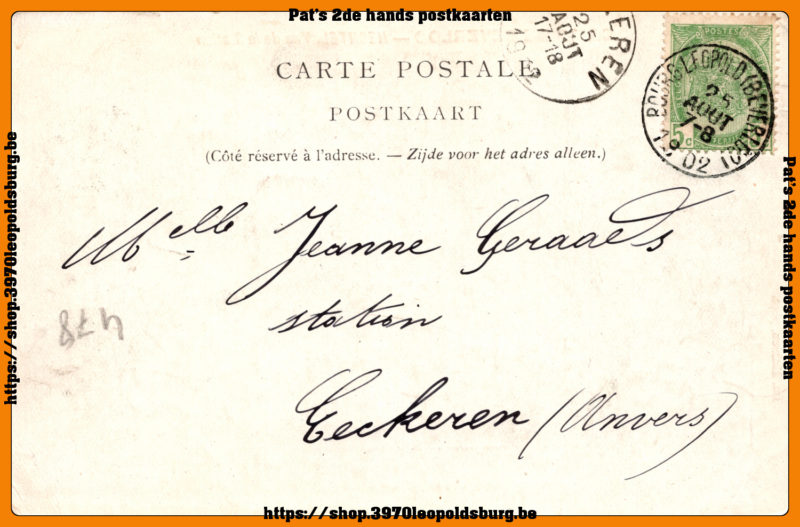 Pat's 2de hands postkaarten
EREN
25
AOUT
17-18
CARTE POSTALE
POSTKAART
(Côté réservé à l'adresse. — Zijde voor het adres alleen.)
BOURG-LEOPOLD
25
AOUT
7-8
1902
5c
Melle Jeanne Geraaels
station
Eeckeren (Anvers)
https://shop.3970leopoldsburg.be
Pat's 2de hands postkaarten
https://shop.3970leopoldsburg.be